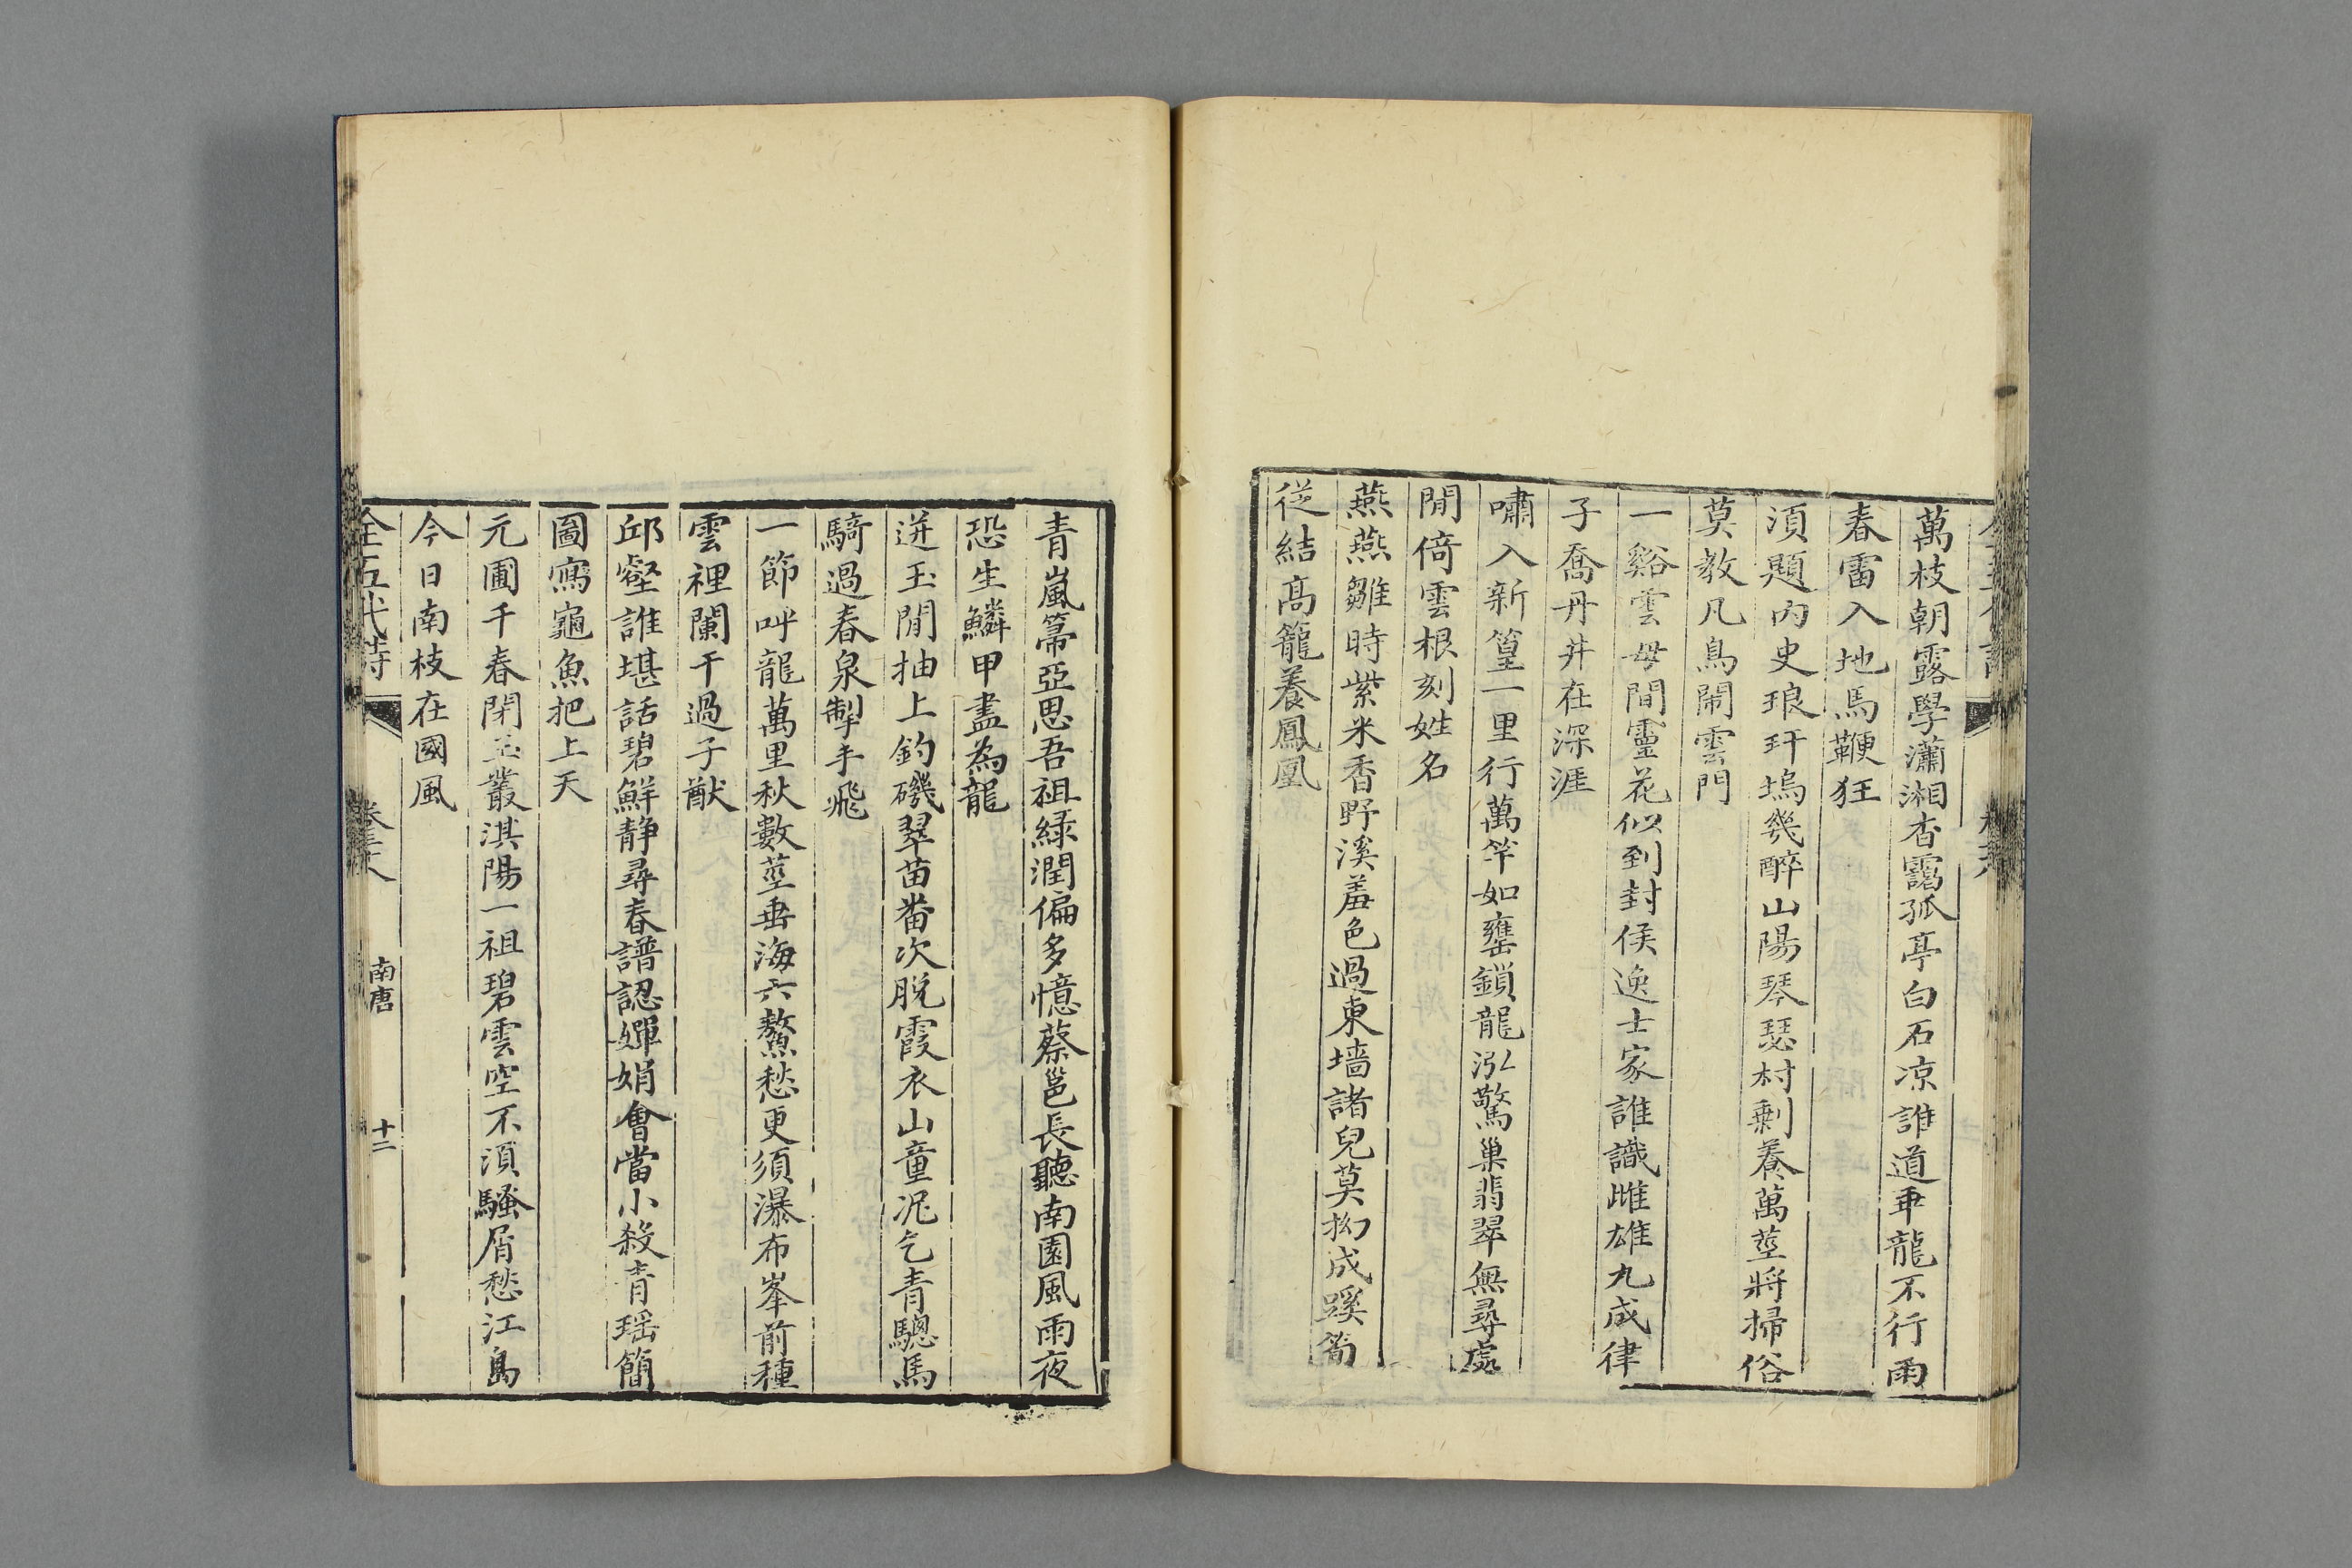 萬枝朝露學瀟湘杳靄孤亭白石凉誰道乖龍不行雨
春雷入地馬鞭狂
湏題内史琅玕塢幾醉山陽琴瑟村剩養萬莖將掃俗
莫教凡鳥鬧雲門
一谿雲母間靈花似到封侯逸士家誰識雌雄九成律
子喬丹井在深涯
嘯入新篁一里行萬竿如甕鎖龍泓驚巢翡翠無尋處
閒倚雲根刻姓名
燕燕雛時紫米香野溪羞色過東墻諸兒莫拗成蹊筍
從結高籠養鳳凰
青嵐箒亞思吾祖綠潤偏多憶蔡邕長聽南園風雨夜
恐生鱗甲盡為龍
迸玉閒抽上釣磯翠苗畨次脫霞衣山童泥乞青驄馬
騎過春泉掣手飛
一節呼龍萬里秋數莖垂海六鰲愁更須瀑布峯前種
雲裡闌干過子猷
邱壑誰堪話碧鮮静尋春譜認嬋娟會當小殺青瑶簡
圖寫龜魚把上天
元圃千春閉玉叢淇陽一祖碧雲空不湏騷屑愁江島
今日南枝在國風
全五代詩
南唐
十二